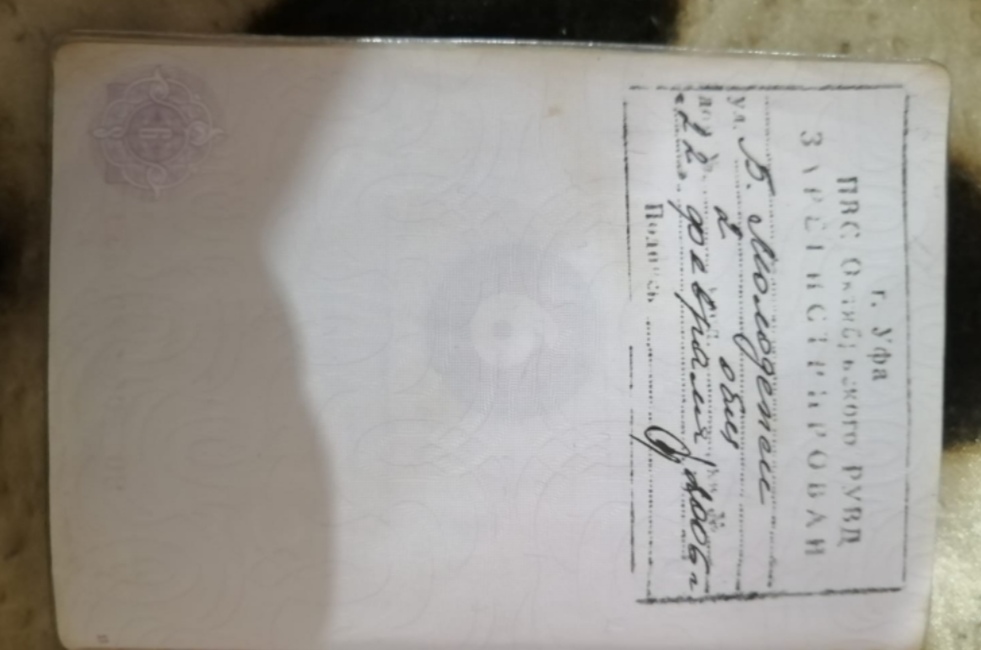 г. Уфа
ПВС Октябрьского РУВД
ЗАРЕГИСТРИРОВАН
ул. Б. Молодежи
2 общ
22 февраля 2006 г
Подпись